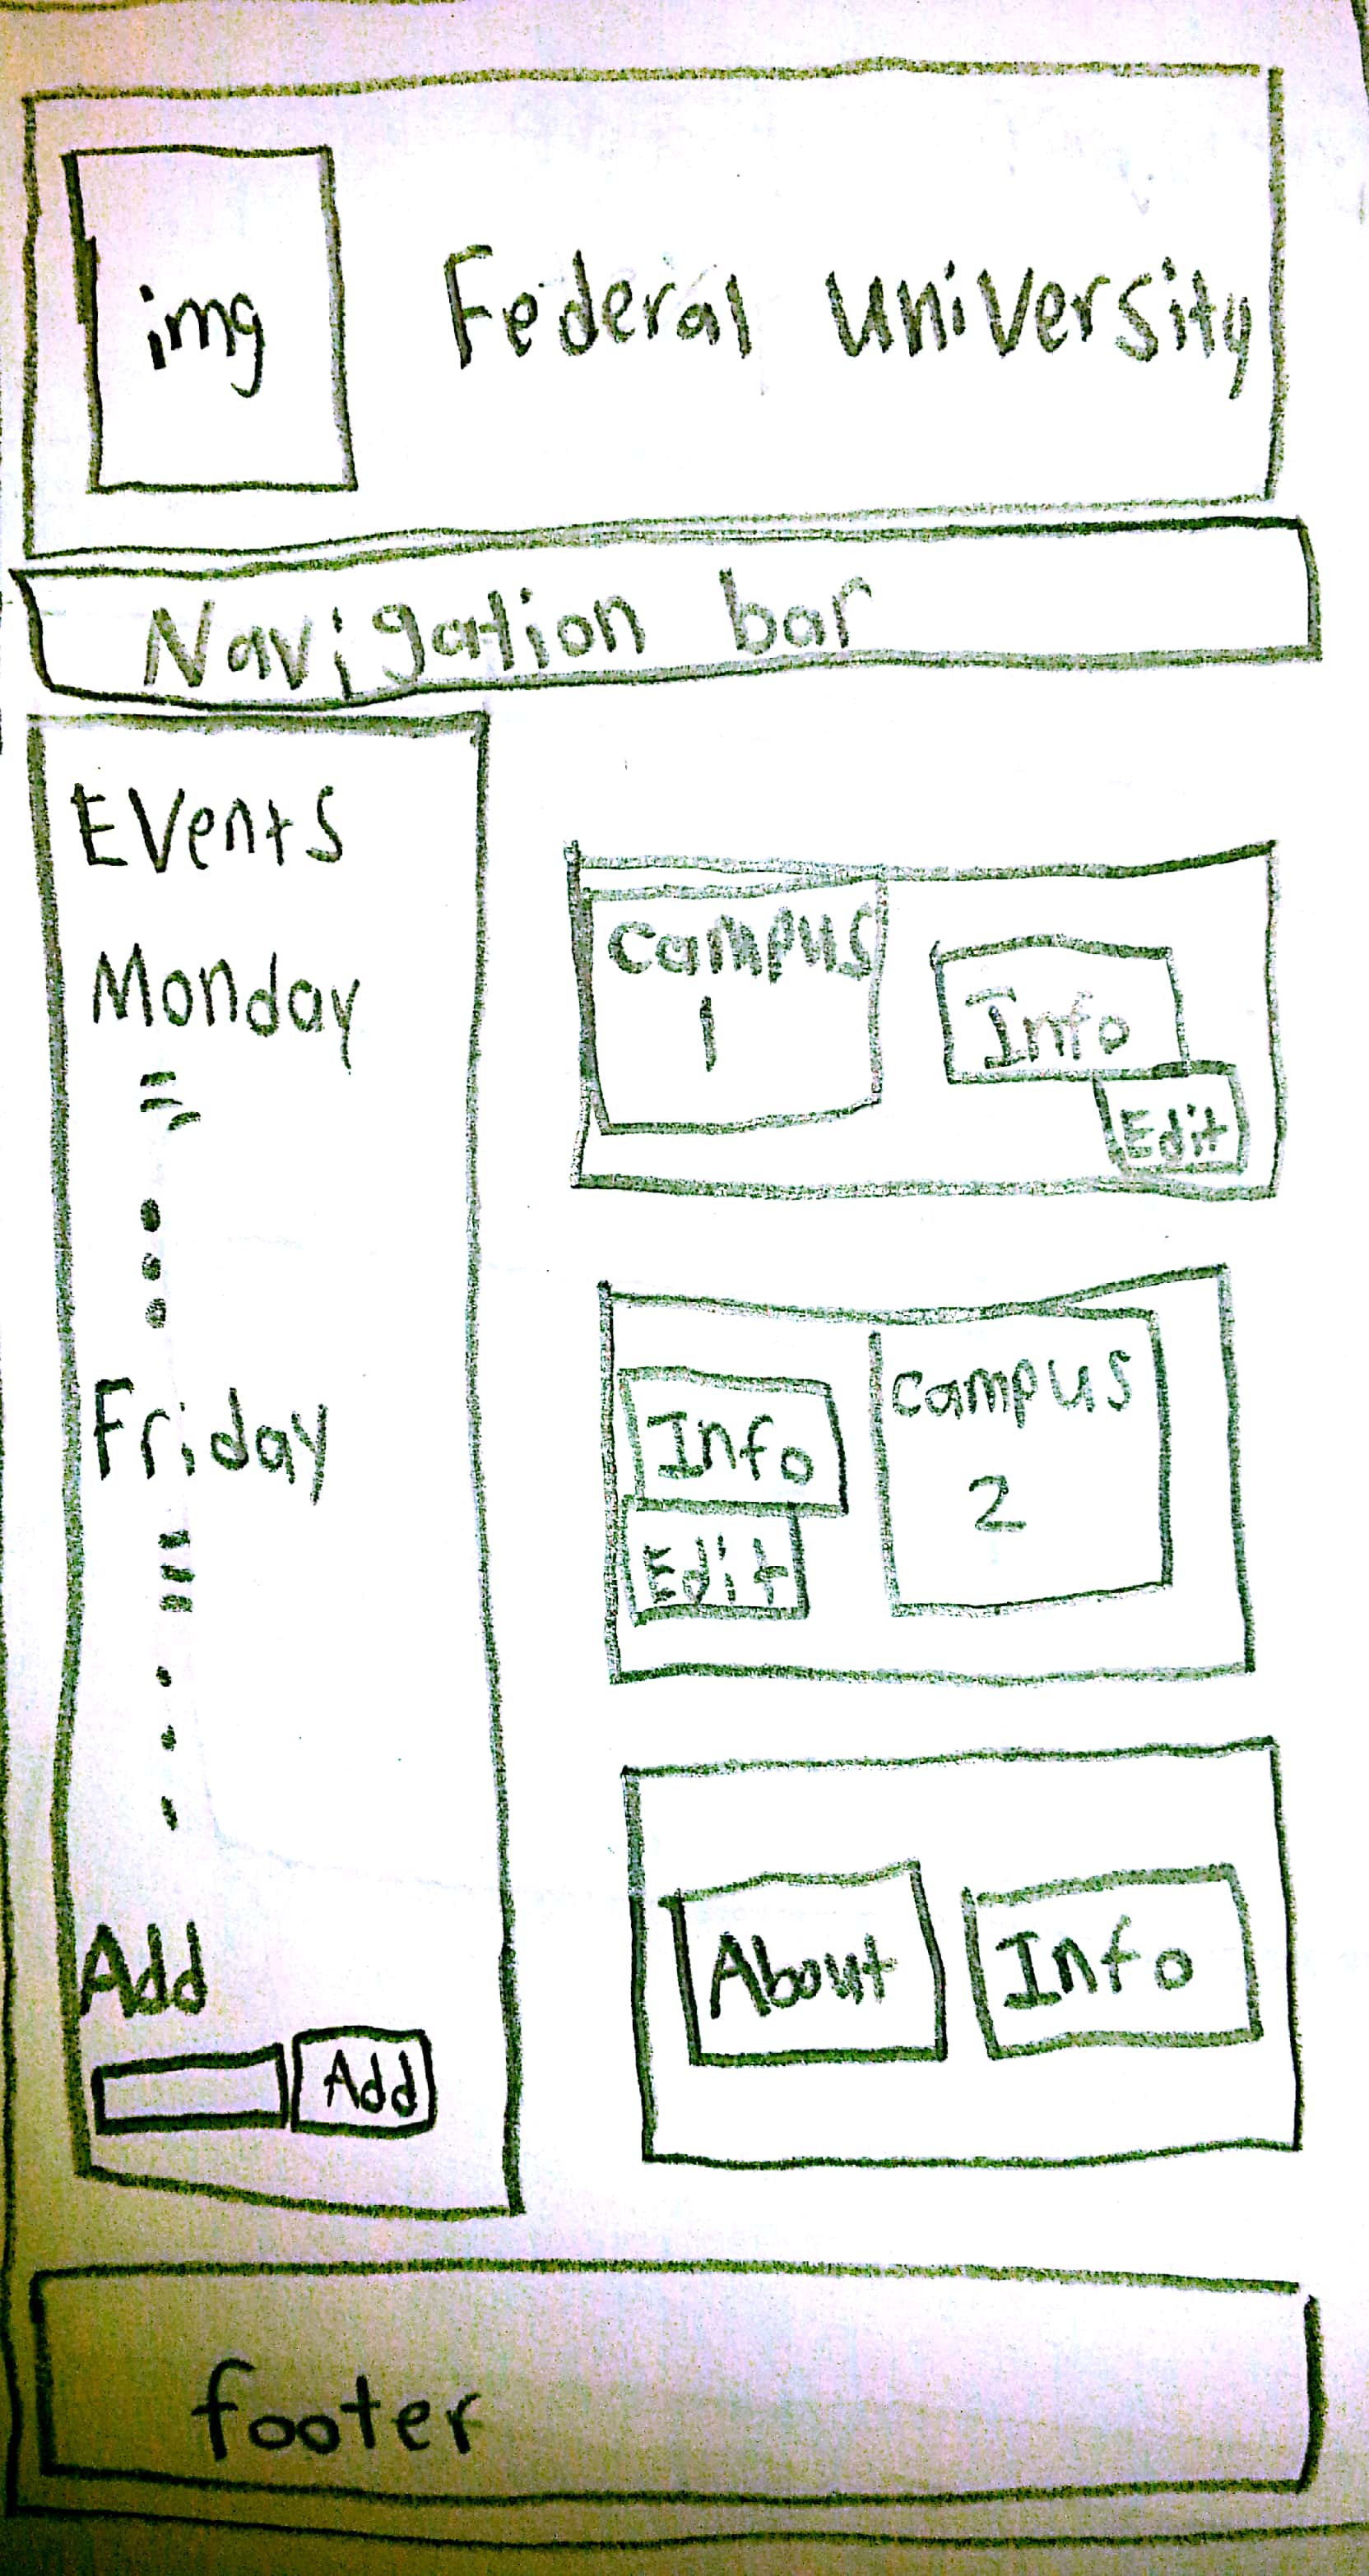 img
Federal University
Navigation bar
Events
Monday
Friday
Add
Add
Campus
1
Info
Edit
Info
Edit
Campus
2
About
Info
footer